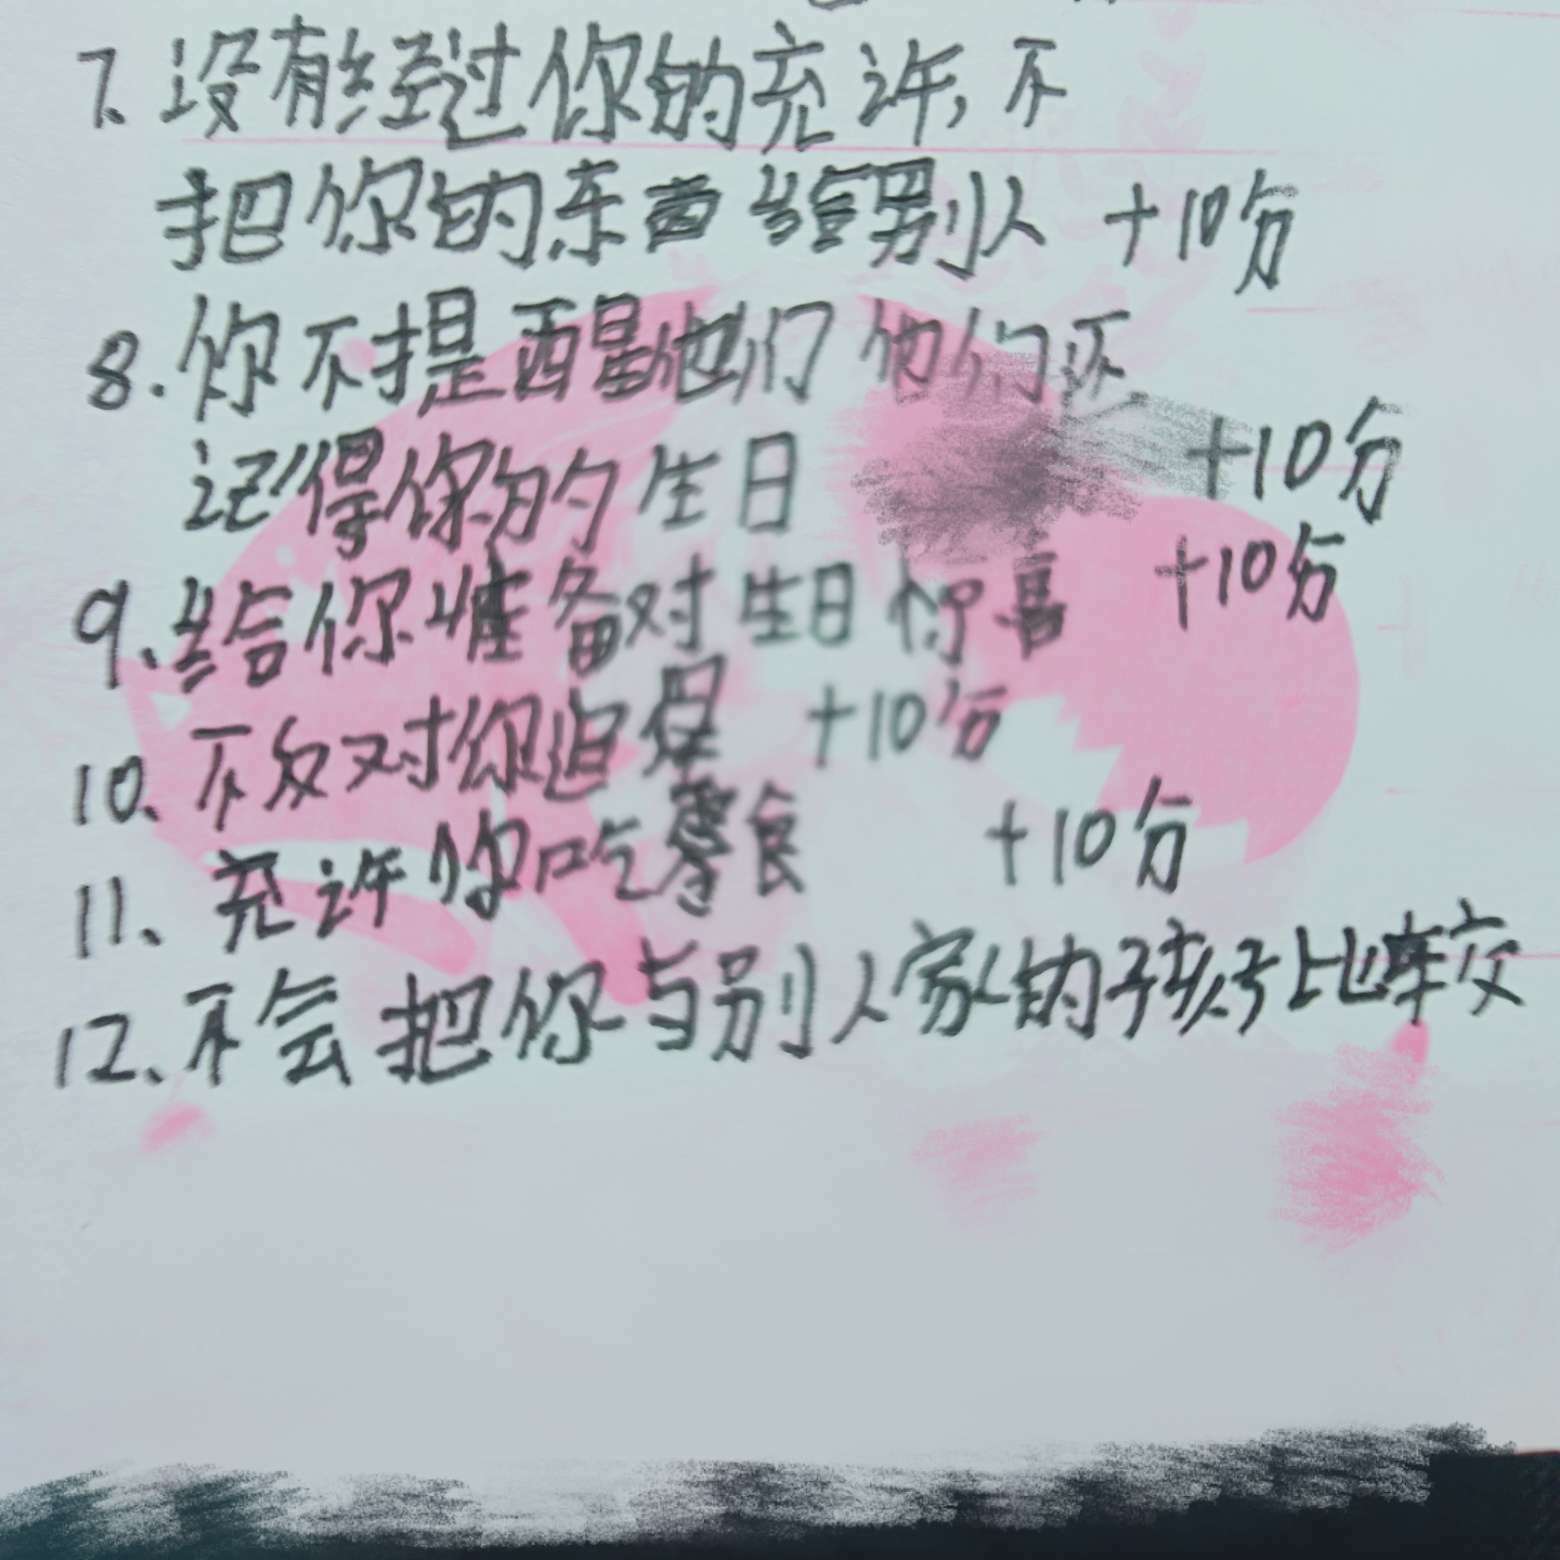 7、没有经过你的充许，不
把你的东西给别人 +10分
8.你不提醒他们 他们还
记得你的生日 +10分
9、给你准备对生日惊喜 +10分
10、不反对你追 +10分
11、充许你吃零食 +10分
12、不会把你与别人家的孩子比较